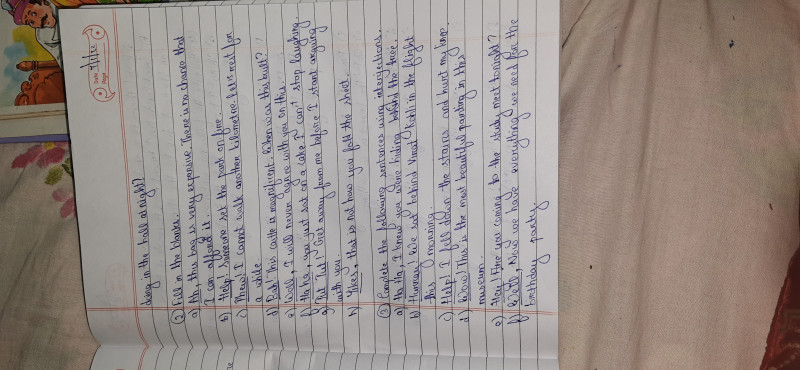 Date 7/1/22
Page
doing in the hall at night?
② Fill in the blanks.
a) Ah, this bag is very expensive. There is no chance that
I can afford it.
b) Help! Someone set the park on fire.
c) Phew! I cannot walk another kilometre. Let's rest for
a while.
d) This castle is magnificent. When was this built?
e) Well, I will never agree with you on this.
f) Ha ha, you just sat on a cake. I can't stop laughing.
g) Tut Tut! Get away from me before I start arguing
with you.
h) Yikes, that is not how you fold the sheet.
③ Complete the following sentences using interjections.
a) Ha Ha, I knew you were hiding behind the tree.
b) Hurray! We sat behind Virat Kohli in the flight
this morning.
c) Help! I fell down the stairs and hurt my knee.
d) Wow! This is the most beautiful painting in this
museum.
e) Hey! Are you coming to the study meet tonight?
f) Now we have everything we need for the
birthday party.